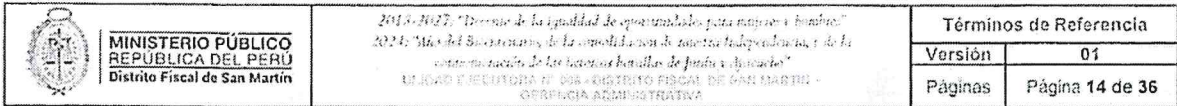 MINISTERIO PÚBLICO
REPÚBLICA DEL PERÚ
Distrito Fiscal de San Martín
"Decenio de la igualdad de oportunidades para mujeres y hombres"
2024: "Año del Bicentenario, de la consolidación de nuestra Independencia, y de la
conmemoración de las heroicas batallas de Junín y Ayacucho"
UNIDAD EJECUTORA N° - DISTRITO FISCAL DE SAN MARTIN -
GERENCIA ADMINISTRATIVA
Términos de Referencia
Versión 01
Páginas Página 14 de 36